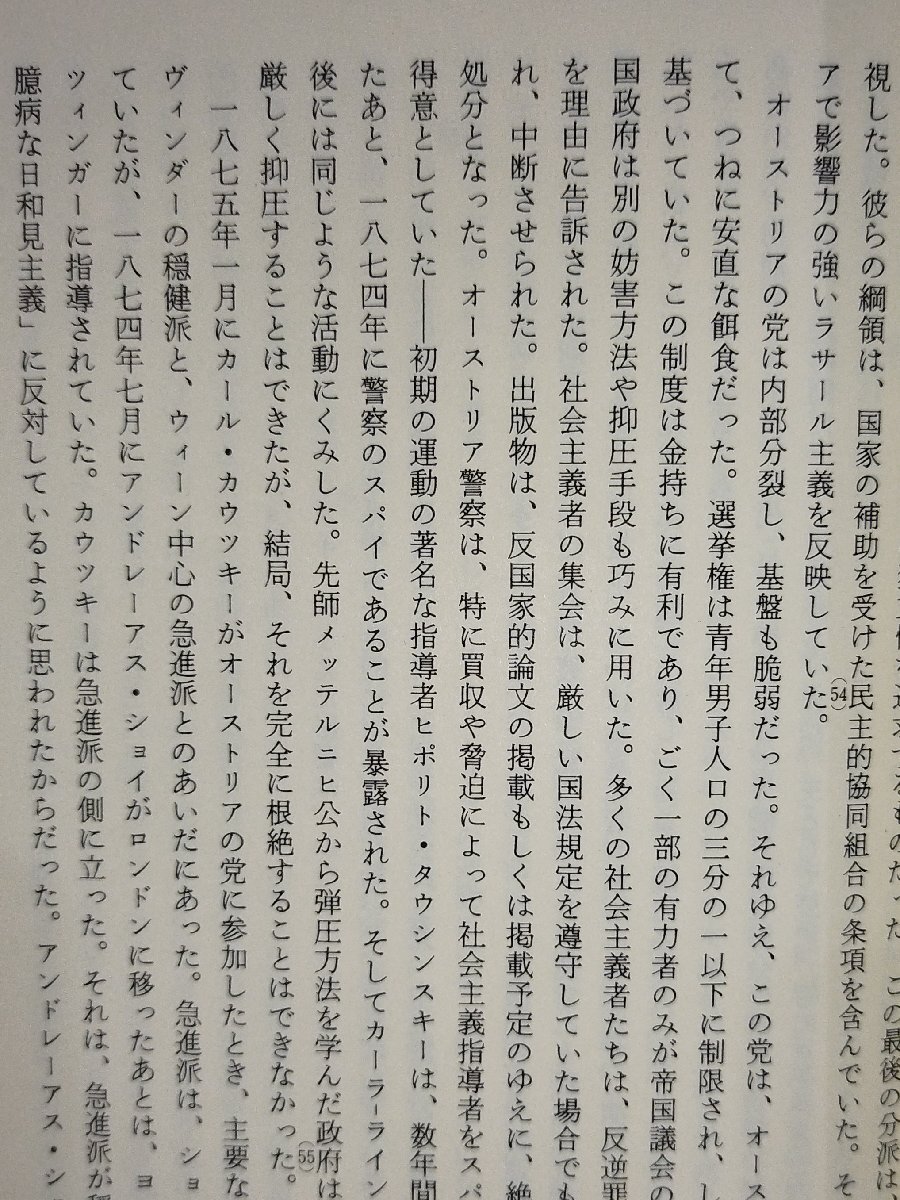 この最後の分派は、
視した。彼らの綱領は、国家の補助を受けた民主的協同組合の条項を含んでいた。そ
アで影響力の強いラサール主義を反映していた。(54)
オーストリアの党は内部分裂し、基盤も脆弱だった。それゆえ、この党は、オース
て、つねに安直な餌食だった。選挙権は青年男子人口の三分の一以下に制限され、し
基づいていた。この制度は金持ちに有利であり、ごく一部の有力者のみが帝国議会の
国政府は別の妨害方法や抑圧手段も巧みに用いた。多くの社会主義者たちは、反逆罪
を理由に告訴された。社会主義者の集会は、厳しい国法規定を遵守していた場合でも
れ、中断させられた。出版物は、反国家的論文の掲載もしくは掲載予定のゆえに、絶
処分となった。オーストリア警察は、特に買収や脅迫によって社会主義指導者をスパ
得意としていた――初期の運動の著名な指導者ヒポリト・タウシンスキーは、数年間
たあと、一八七四年に警察のスパイであることが暴露された。そしてカーラーライン
後には同じような活動にくみした。先師メッテルニヒ公から弾圧方法を学んだ政府は
厳しく抑圧することはできたが、結局、それを完全に根絶することはできなかった。(55)
一八七五年一月にカール・カウツキーがオーストリアの党に参加したとき、主要な
ヴィンダーの穏健派と、ウィーン中心の急進派とのあいだにあった。急進派は、ショ
ていたが、一八七四年七月にアンドレーアス・ショイがロンドンに移ったあとは、ヨ
ツィンガーに指導されていた。カウツキーは急進派の側に立った。それは、急進派が穏
臆病な日和見主義」に反対しているように思われたからだった。アンドレーアス・シ